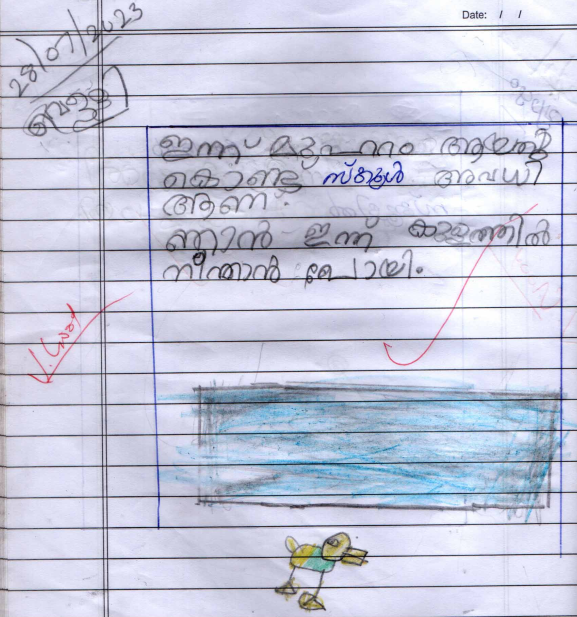 Date: / /
28/07/2023
വെള്ളി
ഇന്ന് മുഹറം ആയത്
കൊണ്ട് സ്കൂൾ അവധി
ആണ.
ഞാൻ ഇന്ന് കുളത്തിൽ
നീന്താൻ പോയി.
V. Good